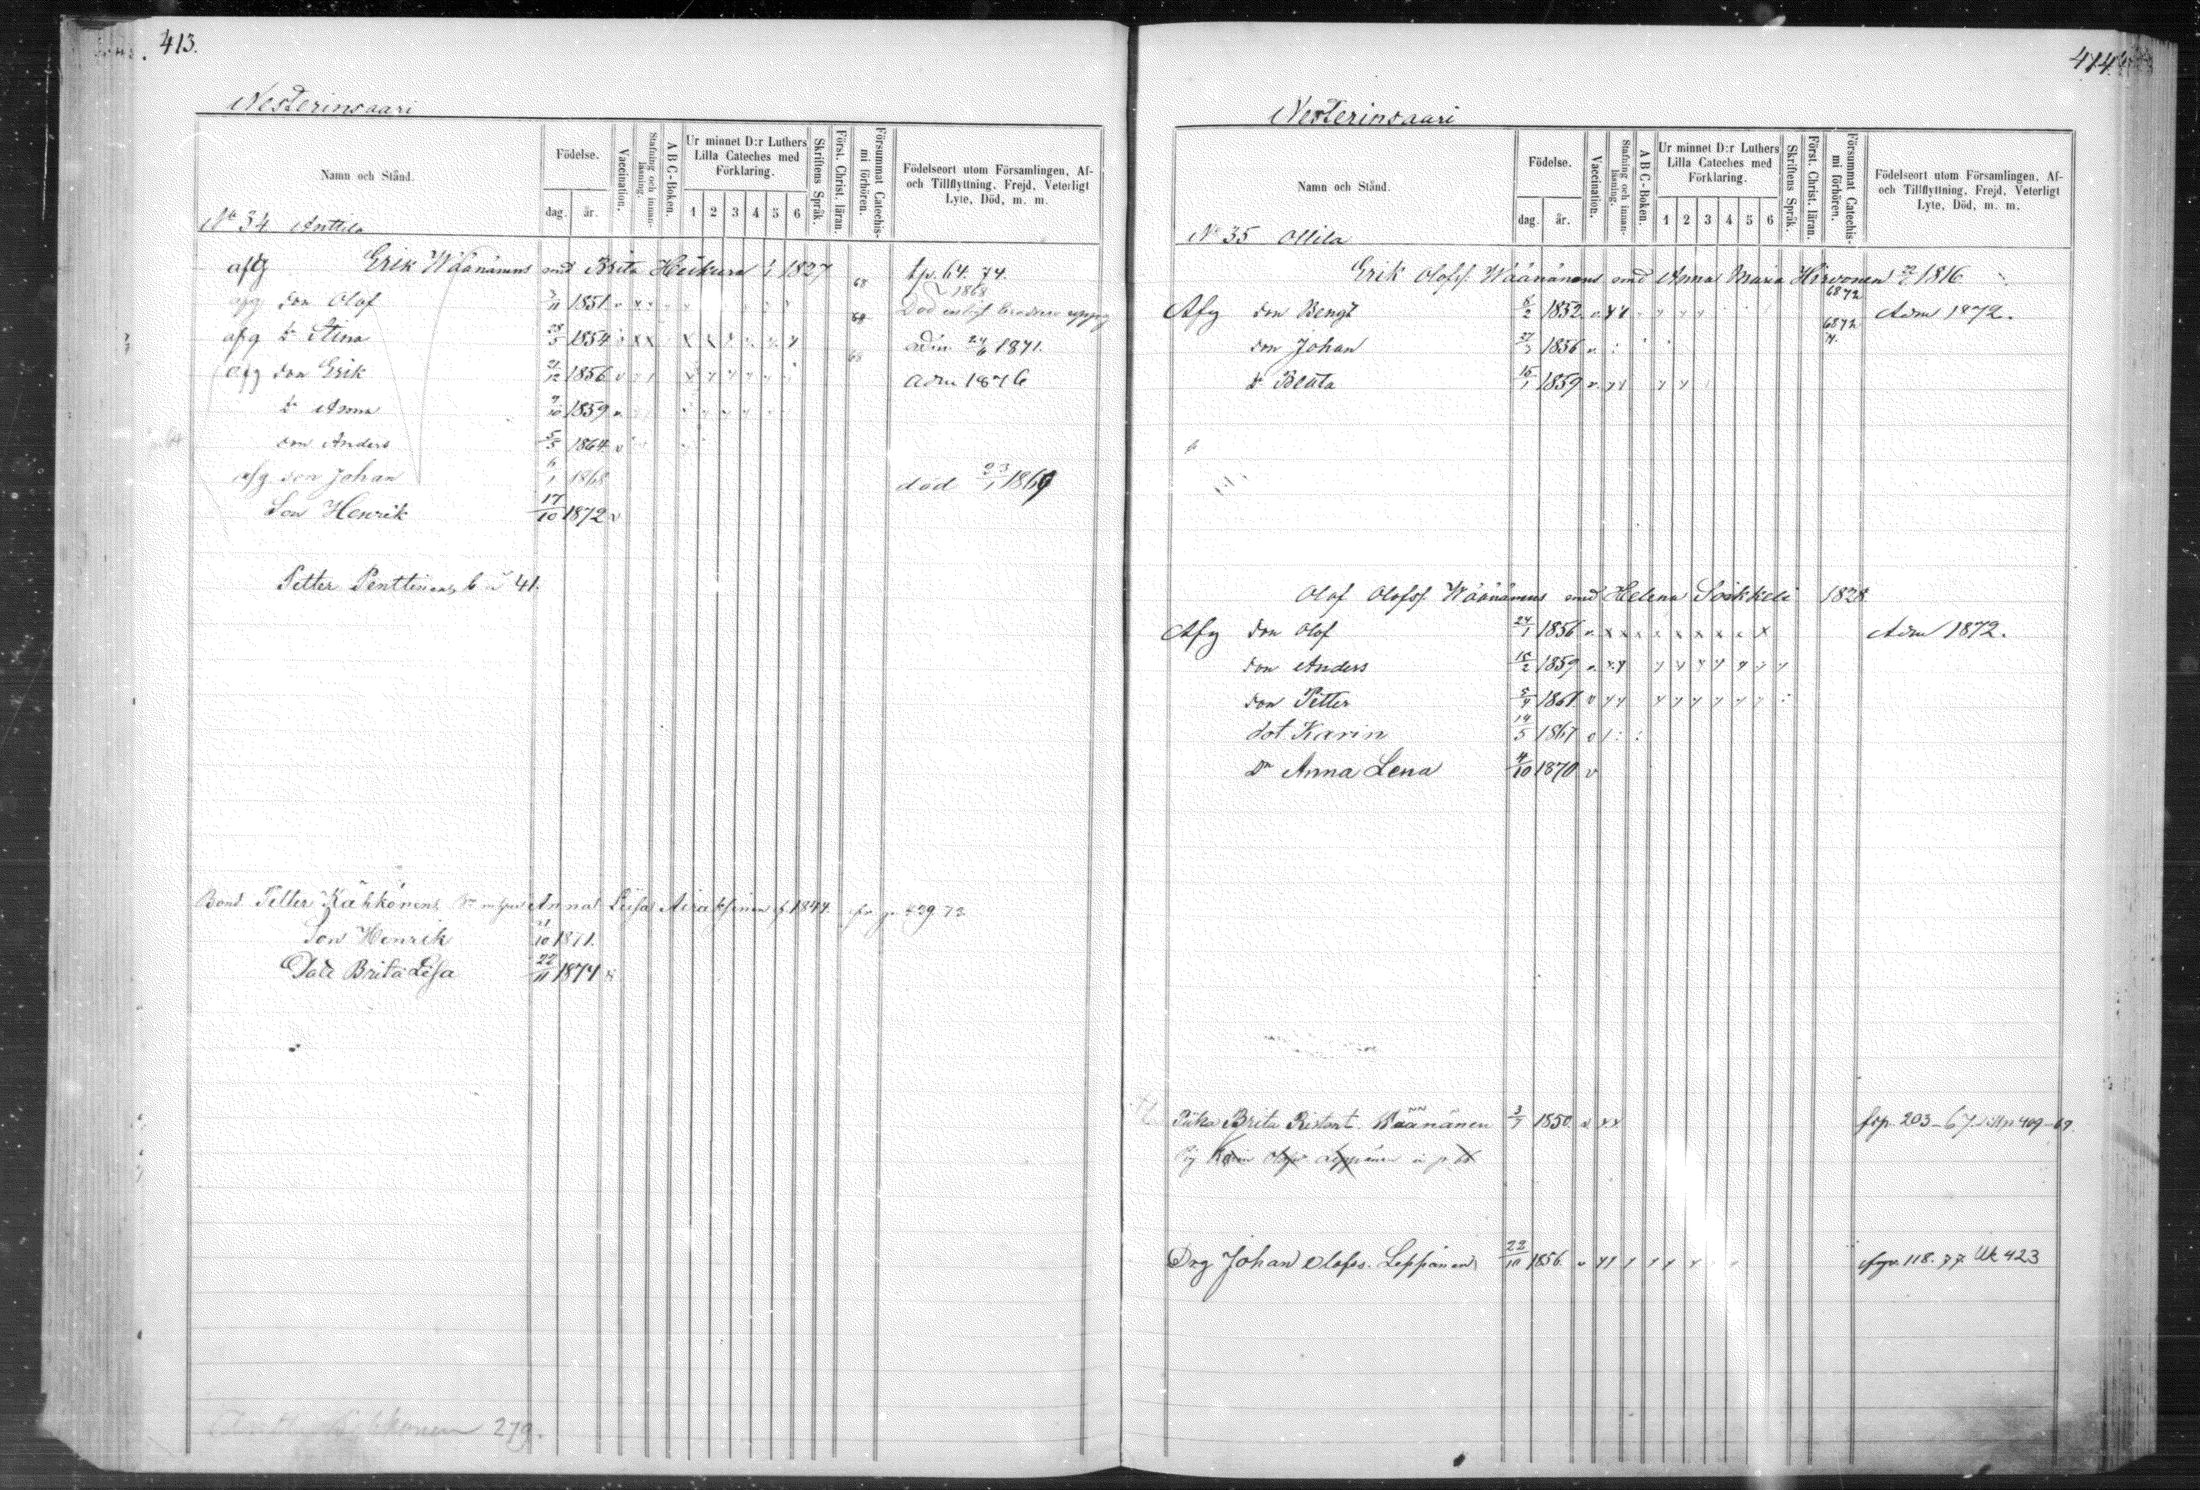 413.
Nesterinsaari
Namn och Stånd.
Födelse.
dag.
år.
Vaccination.
Stafning och innan-läsning.
A B C-Boken.
Ur minnet D:r Luthers Lilla Cateches med Förklaring.
1 2 3 4 5 6
Skriftens Språk.
Först. Christ. läran.
Försummat Catechis-mi förhören.
Födelseort utom Församlingen, Af- och Tillflyttning, Frejd, Veterligt Lyte, Död, m. m.
No 34 Anttila
afg Erik Wäänänens Brita Heikura 1827 68 fp. 64. 74.
afg son Olof 1851 v 1868 Död
afg Stina 1854 adm 1871.
afg son Erik 21/12 1856 68 adm 1876
Anna 9/10 1859
son Anders 5/5 1864 v
afg son Johan 6/1 1868 död 23/1 1869
Son Henrik 17/10 1872 v
Petter Penttinens 41.
Bond. Petter Kähkönens Anna Lisa Airaksinen f. 1844 fr p 429 72
Son Henrik 1871.
Dott Brita Lisa 22/11 1874
279.
414
Nesterinsaari
Namn och Stånd.
Födelse.
dag.
år.
Vaccination.
Stafning och innan-läsning.
A B C-Boken.
Ur minnet D:r Luthers Lilla Cateches med Förklaring.
1 2 3 4 5 6
Skriftens Språk.
Först. Christ. läran.
Försummat Catechis-mi förhören.
Födelseort utom Församlingen, Af- och Tillflyttning, Frejd, Veterligt Lyte, Död, m. m.
No 35 Ollila
Erik Olofss. Wäänänens Anna Maria Hirvonen 1816
Afg son Bengt 1852 68 72 Adm 1872.
son Johan 1856 68 72
Dr Beata 15/1 1859
Olof Olofss. Wäänänens Helena Soikkeli 1828
Afg son Olof 24/1 1856 Adm 1872.
son Anders 1859
son Petter 1861
dot Karin 14/5 1867
Dr Anna Lena 4/10 1870 v
Pika Brita Ristant. Wäänänen 3/7 1850 frp. 203-67
Drg Johan Olofss. Leppänen 22/10 1856 118. 77 Utk 423